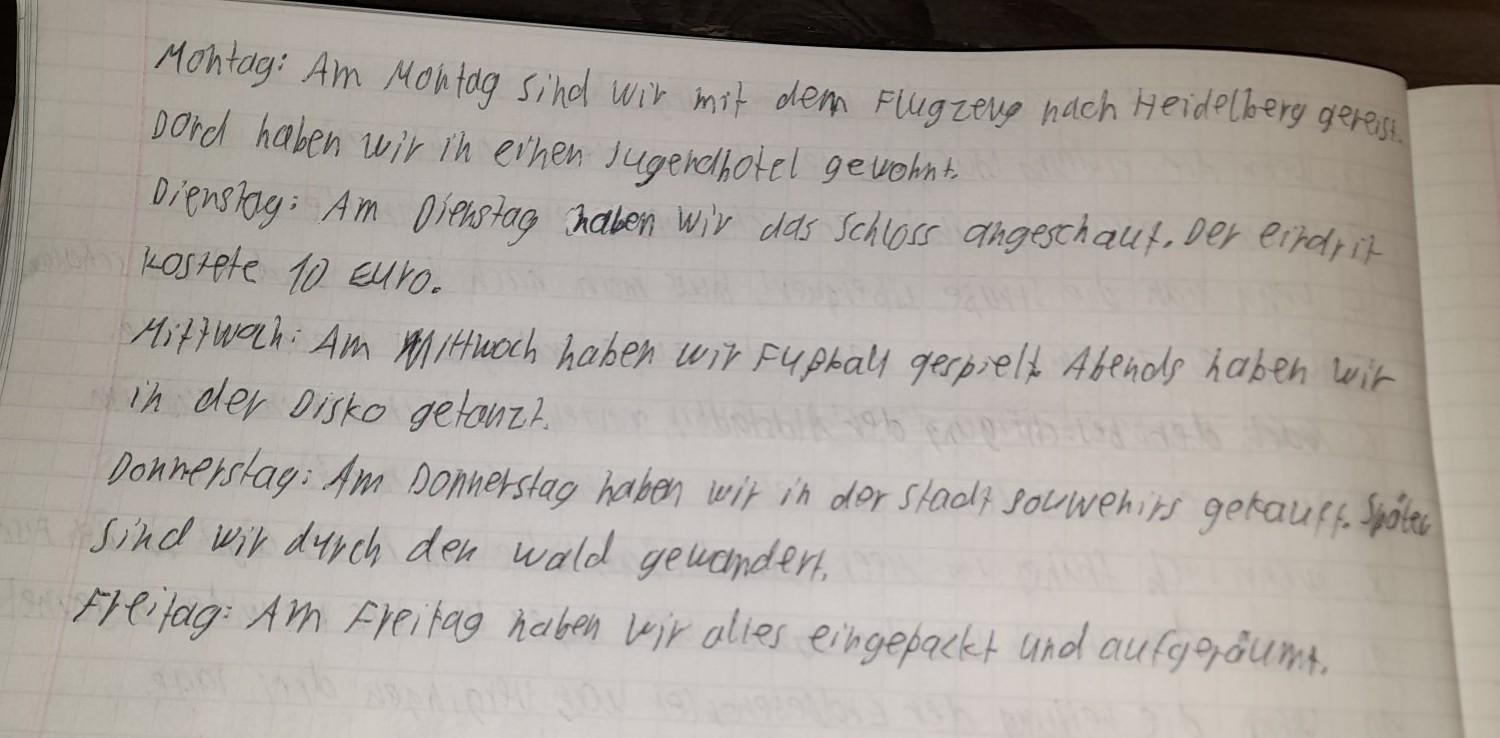 Montag: Am Montag sind wir mit dem Flugzeug nach Heidelberg gereist.
Dord haben wir in einen Jugendhotel gewohnt.
Dienstag: Am Dienstag haben wir das Schloss angeschaut. Der eindrit
kostete 10 Euro.
Mittwoch: Am Mittwoch haben wir Fußball gespielt. Abends haben wir
in der Disko getanzt.
Donnerstag: Am Donnerstag haben wir in der Stadt souwenirs gekauft. Später
sind wir durch den wald gewandert.
Freitag: Am Freitag haben wir alles eingepackt und aufgeräumt.